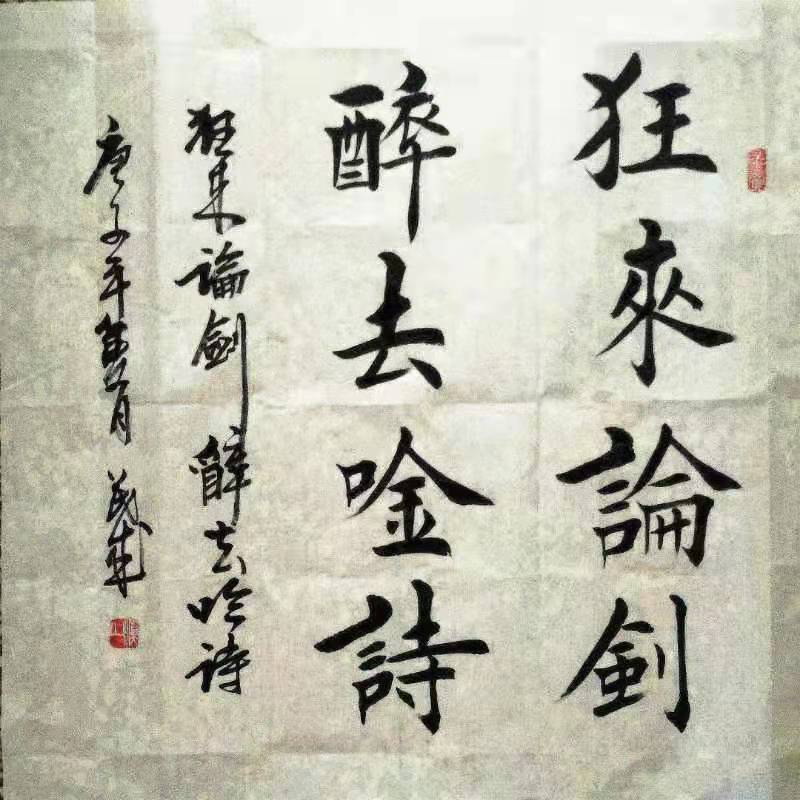 狂來論劍
醉去唫詩
狂来論劍醉去吟诗
庚子年月